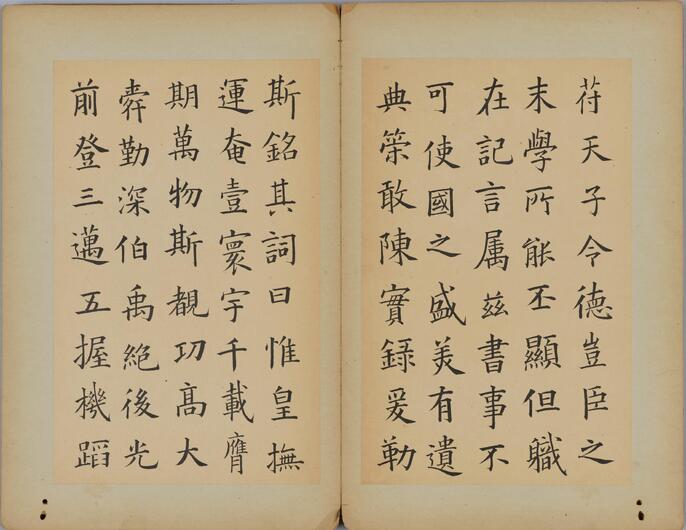 苻天子令德豈臣之
末學所能丕顯但職
在記言属茲書事不
可使國之盛美有遺
典策敢陳實錄爰勒
斯銘其詞曰惟皇撫
運奄壹寰宇千載膺
期萬物斯覩功髙大
舜勤深伯禹絕後光
前登三邁五握機蹈